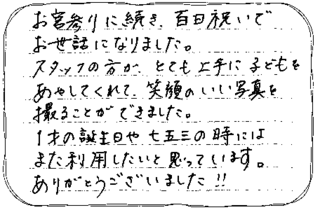 お宮参りに続き、百日祝いで
お世話になりました。
スタッフの方が、とても上手に子どもを
あやしてくれて、笑顔のいい写真を
撮ることができました。
1才の誕生日や七五三の時には
また利用したいと思っています。
ありがとうございました!!